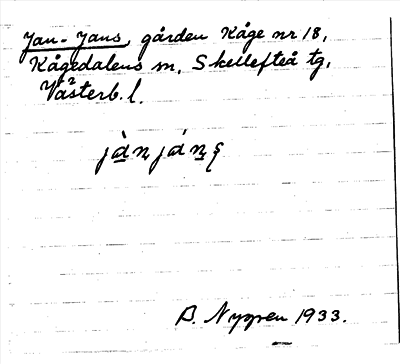 Jan-Jans, gården Kåge nr 18,
Kågedalens m, Skellefteå tg,
Västerb. l.
jàn jánş
B. Nygren 1933.